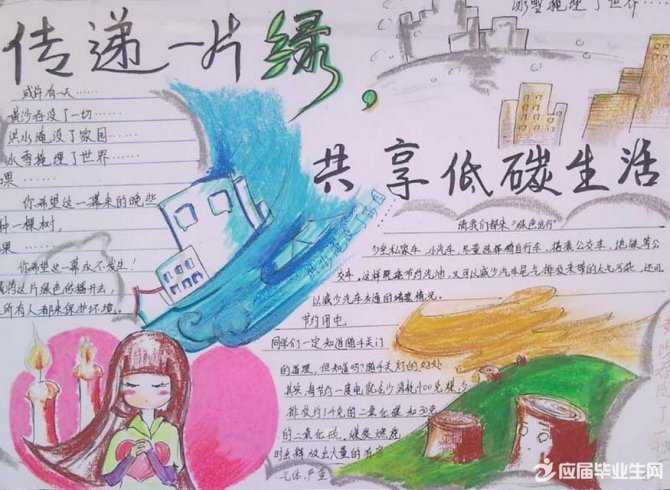 传递一片绿,
共享低碳生活
或许有一天……
黄沙吞没了一切……
洪水淹没了家园……
冰雪掩埋了世界……
果……
你希望这一幕来的晚些
种一棵树,
果……
你希望这一幕永不发生!
这片绿色传播开去,
所有人都来保护环境。
掩埋了世界……
洪水淹没了家园
让我们都来“绿色出行”
少坐私家车、小汽车,尽量选择骑自行车、搭乘公交车、地铁等公
交车。这样既能节约汽油,又可以减少汽车尾气排放带来的大气污染,还可
以减少汽车交通的堵塞情况。
节约用电。
同学们一定知道随手关门
的道理,但知道吗?随手关灯的好处
其实,每节约一度电就
的二氧化硫
放出大量的
气体,严重
应届毕业生网